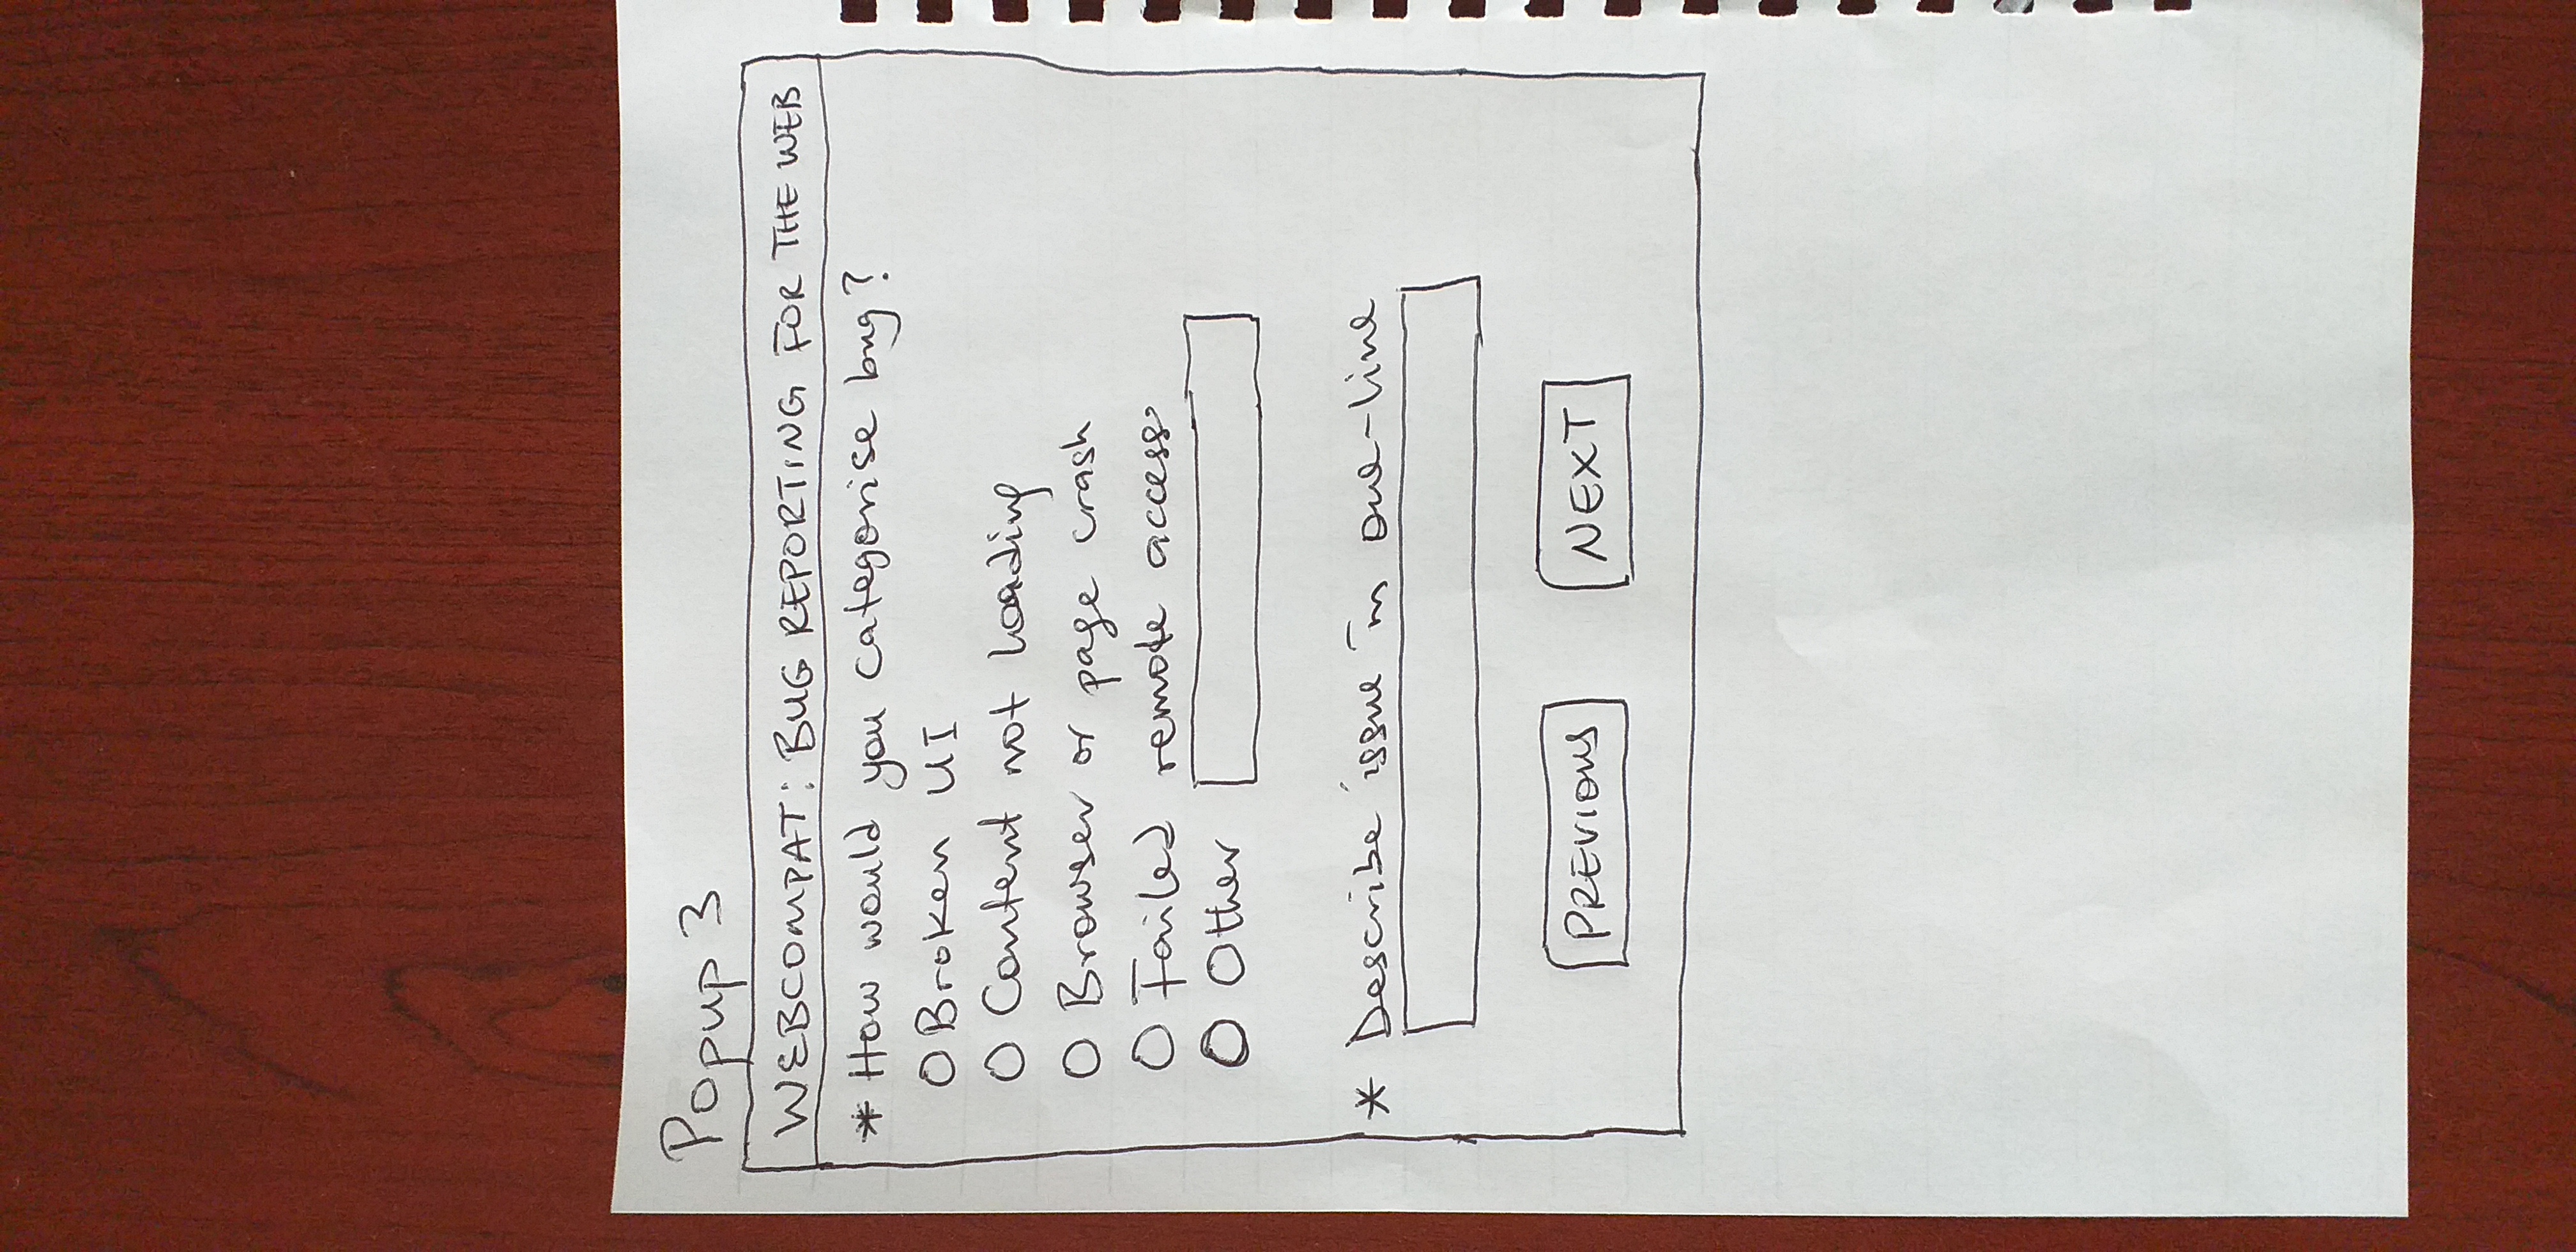 Popup 3
WEBCOMPAT: BUG REPORTING FOR THE WEB
* How would you categorise bug?
O Broken UI
O Content not loading
O Browser or page crash
O Failed remote access
O Other
* Describe issue in one-line
PREVIOUS NEXT